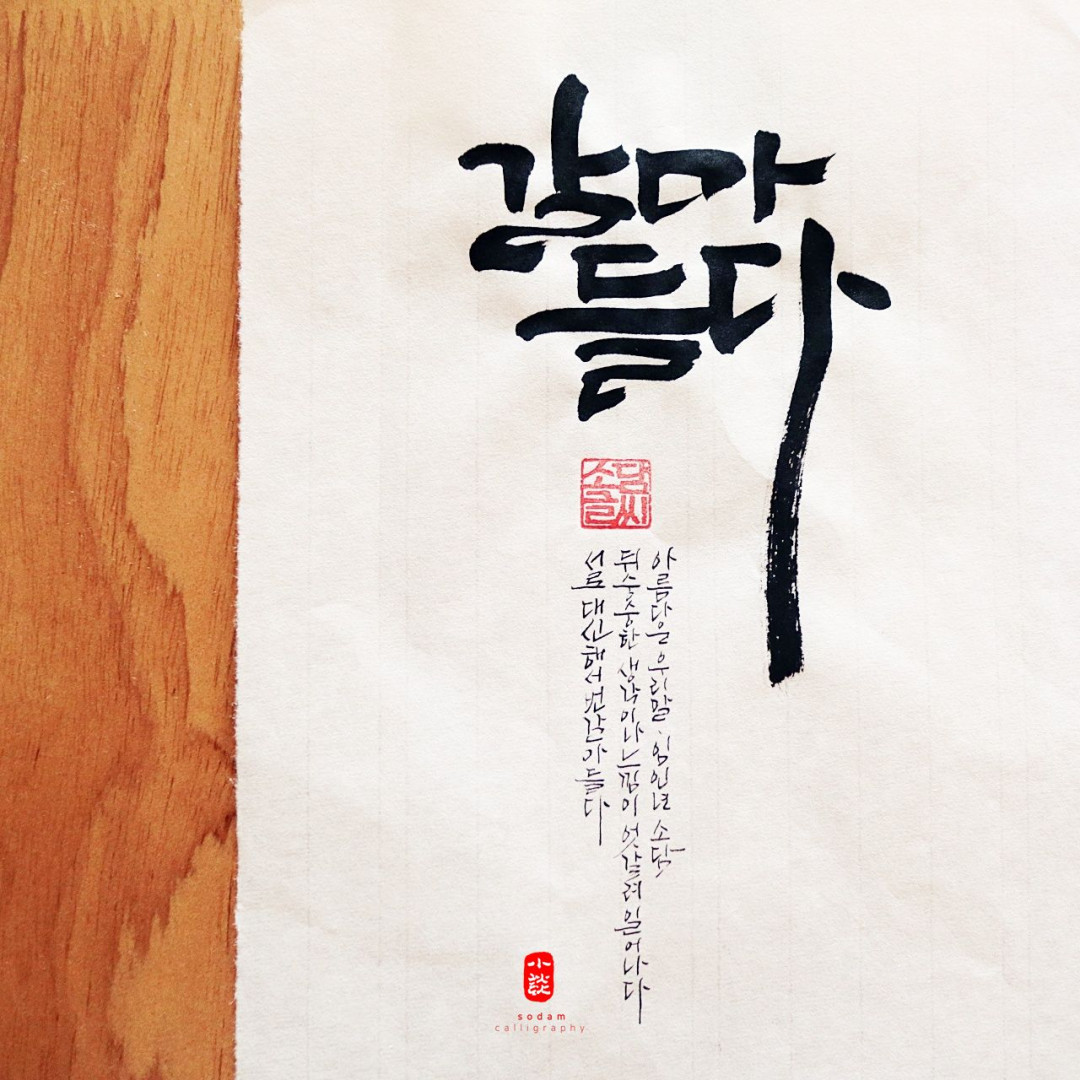 갈마
들다
소담
글씨
서로 대신해서 번갈아들다
뒤숭숭한 생각이나 느낌이 엇갈려 일어나다
아름다운 우리말 임인년 소담
sodam
calligraphy